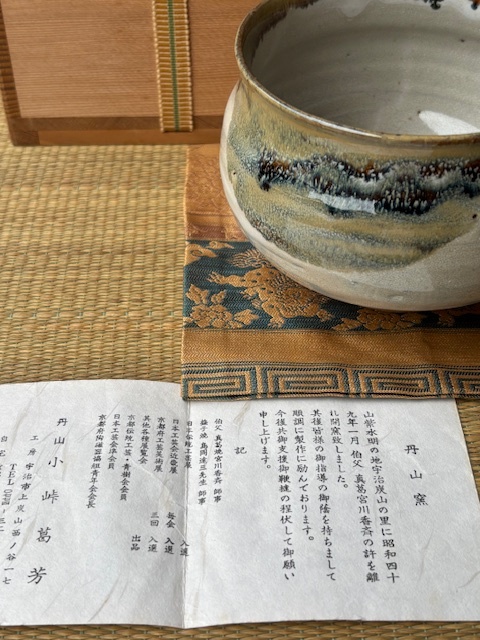 丹山窯
山紫水明の地宇治炭山の里に昭和四十
九年一月 伯父 真葛宮川香斉の許を離
れ開窯致しました。
其後皆様の御指導の御蔭を持ちまして
順調に製作に励んでおります。
今後共御支援御鞭撻の程伏して御願い
申し上げます。
記
伯父 真葛宮川香斉 師事
益子焼 島岡達三先生 師事
日本伝統工芸展 入選
日本工芸会近畿展 毎会 入選
京都府工芸美術展 三回 入選
其他各種展覧会 出品
京都伝統工芸・青樹会会員
日本工芸会準会員
京都府陶磁器協組青年会会長
丹山 小峠葛芳
工房 宇治市上炭山苗ノ谷一七
TEL
自宅